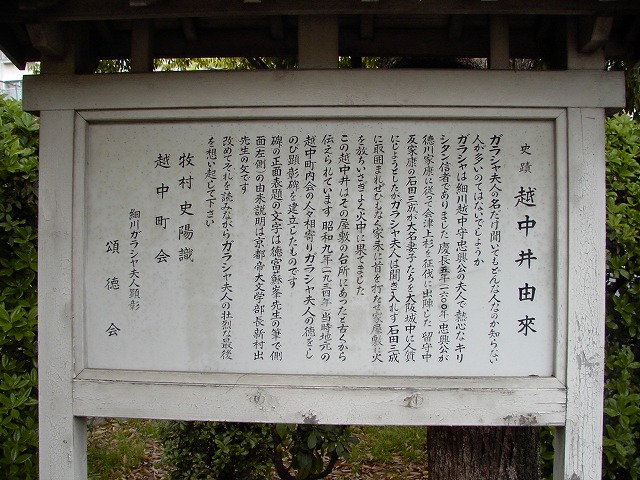 史蹟 越中井由来
ガラシャ夫人の名だけ聞いてもどんな人なのか知らない
人が多いのではないでしょうか
ガラシャは細川越中守忠興公の夫人で熱心なキリ
シタン信者でありました 慶長五年(一六〇〇年)忠興公が
徳川家康に従って会津上杉を征伐に出陣した 留守中
反家康の石田三成が大名妻子たちを大阪城中に人質
にしようとしたがガラシャ夫人は聞き入れず 石田三成
に取囲まれぜひもなく家来に首を打たせ家屋敷に火
を放ちいさぎよく火中に果てました
この越中井はその屋敷の台所にあったと古くから
伝えられています 昭和九年(一九三四年)当時地元の
越中町内会の人々相寄りガラシャ夫人の徳をし
のび顕彰碑を建立したものです
碑の正面表題の文字は徳富蘇峯先生の筆で側
面左側の由来説明は京都帝大文学部長新村出
先生の文です
改めてそれを読みながらガラシャ夫人の壮烈な最後
を想い起して下さい
牧村史陽識
越中町会
細川ガラシャ夫人顕彰
頌徳会